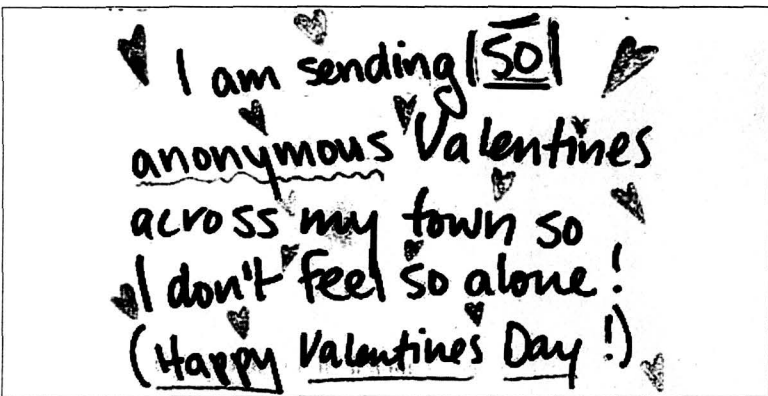 I am sending |50|
anonymous Valentines
across my town so
I don't feel so alone!
(Happy Valentines Day!)